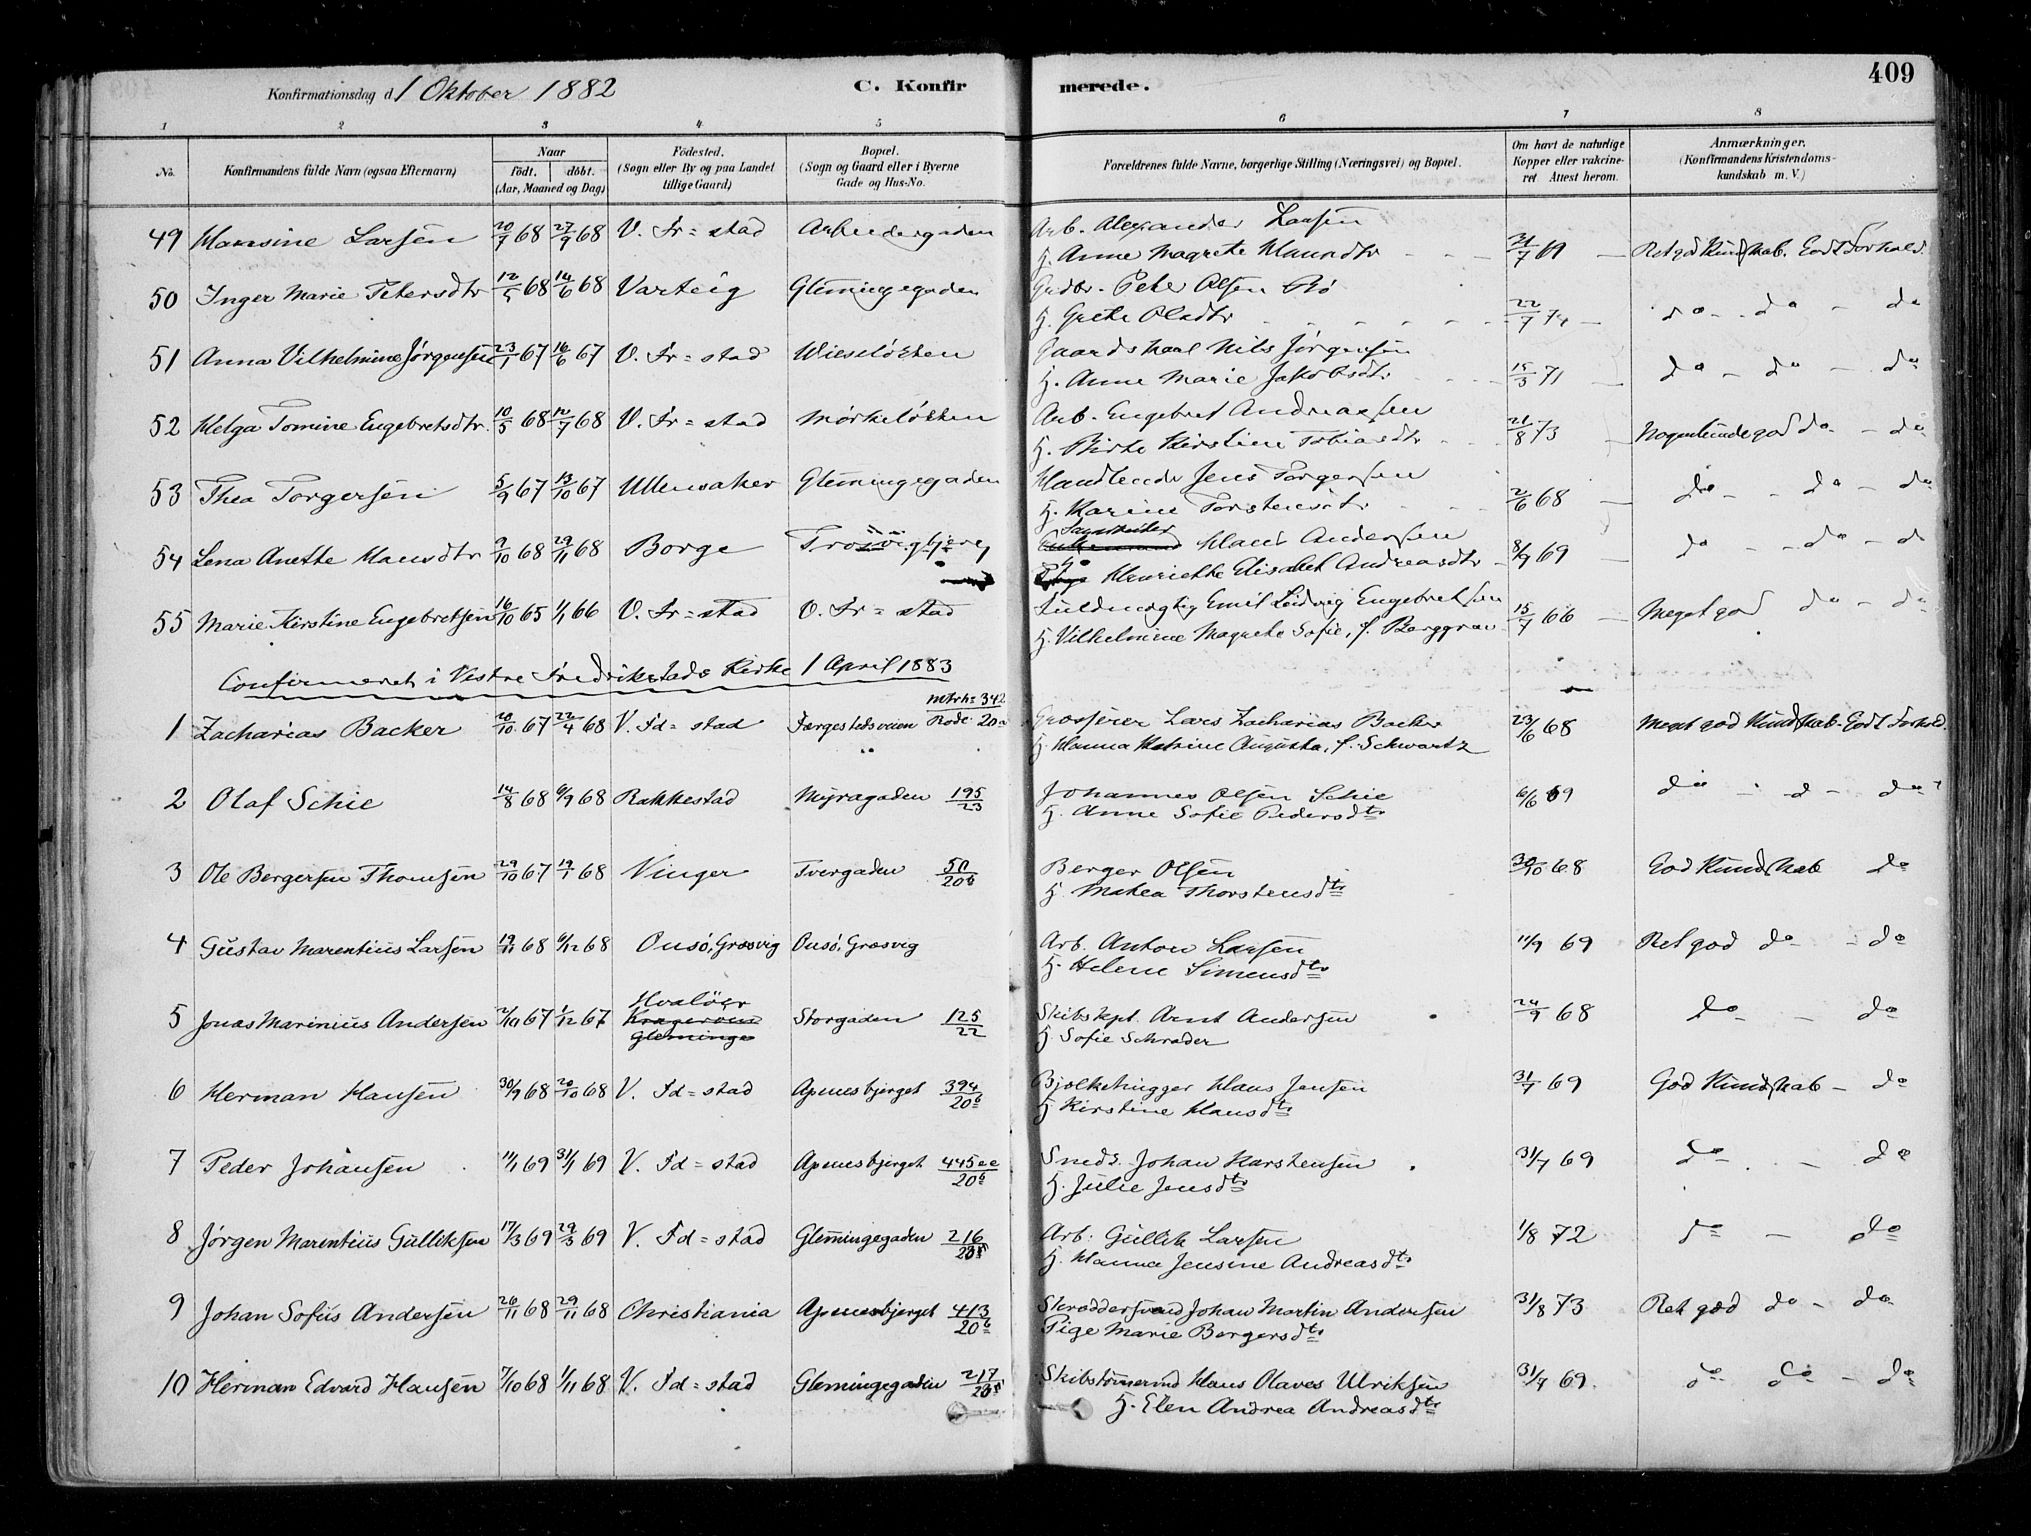 409
Konfirmationsdag d. 1 Oktober 1882 C. Konfirmerede.
1 2 3 4 5 6 7 8
No. Konfirmandens fulde Navn (ogsaa Efternavn) Naar født. døbt. (Aar, Maaned og Dag) Fødested. (Sogn eller By og paa Landet tillige Gaard) Bopæl. (Sogn og Gaard eller i Byerne Gade og Hus-No. Forældrenes fulde Navne, borgerlige Stilling (Næringsvei) og Bopæl. Om havt de naturlige Kopper eller vakcineret Attest herom. Anmærkninger. (Konfirmandens Kristendomskundskab m. V.)
49 Hansine Larsen 20/7 68 27/9 68 V. Fr=stad Arbeidergaden Arb. Alexander Larsen
H. Anne Magrete Hansdtr 31/7 69 Ret god Kundskab. Godt Forhold.
50 Inger Marie Petersdtr 12/5 68 14/6 68 Varteig Glemmingegaden Gaardbr. Peter Olsen Bø
H. Grete Olsdtr 22/7 74 do do do
51 Anna Vilhelmine Jørgensen 23/1 67 16/6 67 V. Fr=stad Wieseløkken Gaardskarl Nils Jørgensen
H. Anne Marie Jakobsdtr 15/5 71 do do do
52 Helga Tomine Engebretsdtr. 10/5 68 12/7 68 V. Fr=stad Mørkeløkken Arb. Engebret Andreassen
H. Birte Kirstine Tobiasdtr 21/8 73 Nogenlunde god do do
53 Thea Torgersen 5/9 67 13/10 67 Ullensaker Glemmingegaden Handlende Jens Torgersen
H. Karine Torstensdtr 2/6 68 do do do
54 Lena Anette Hansdtr 9/10 68 29/11 68 Borge Trosvigbjerg Hans Andersen
H. Henriette Elisabet Andreasdtr 8/9 69 do do do
55 Marie Kirstine Engebretsen 16/10 65 1/1 66 V. Fr=stad V. Fr=stad Fuldmægtig Emil Ludvig Engebretsen
H. Vilhelmine Magrete Sofie, f. Berggrav 15/7 66 Meget god do do
Confirmeret i Vestre Fredrikstads Kirke 1 April 1883
1 Zacharias Backer 20/10 67 22/4 68 V. Fd=stad Færgestedsveien Mtrk: 342 Rode: 20 Grosserer Lars Zacharias Backer
H. Hanna Katrine Augusta, f. Schwartz 23/6 68 Meget god Kundskab. Godt Forhold.
2 Olaf Schie 14/8 68 6/9 68 Rakkestad Myragaden 195/23 Johannes Olsen Schie
H. Anne Sofie Pedersdtr 6/6 69 do do do
3 Ole Bergersen Thomsen 29/10 67 19/1 68 Vinger Tvergaden 50/20b Berger Olsen
H. Mathea Thorstensdtr 30/10 68 God Kundskab do
4 Gustav Marentius Larsen 19/11 68 6/12 68 Onsø, Græsvig Onsø, Græsvig Arb. Anton Larsen
H. Helene Simensdtr 11/9 69 Ret god do do
5 Jonas Marinius Andersen 2/10 67 1/12 67 Hvaløer Kragerøen Glemminge Storgaden 125/22 Skibskpt. Arnt Andersen
H. Sofie Schrader 24/9 68 do do
6 Herman Hansen 30/9 68 20/10 68 V. Fd=stad Apenesbjerget 394/20b Bjelkehugger Hans Jensen
H. Kirstine Hansdtr 31/7 69 God Kundskab do
7 Peder Johansen 11/1 69 31/1 69 V. Fd=stad Apenesbjerget 445ae/20b Snedk. Johan Karstensen
H. Julie Jensdtr 31/7 69 do do
8 Jørgen Marentius Gulliksen 17/3 69 29/3 69 V. Fd=stad Glemmingegaden 216/20 Arb. Gullik Larsen
H. Hanna Jensine Andreasdtr 1/8 72 do do
9 Johan Sofus Andersen 26/11 68 29/11 68 Christiania Apenesbjerget 413/20b Skræddersvend Johan Martin Andersen
Pige Marie Bergersdtr 31/8 73 Ret god do do
10 Herman Edvard Hansen 7/10 68 1/11 68 V. Fd=stad Glemmingegaden 217/20 Skibstømmermd Hans Olaves Ulriksen
H. Elen Andrea Andreasdtr 31/7 69 do do do